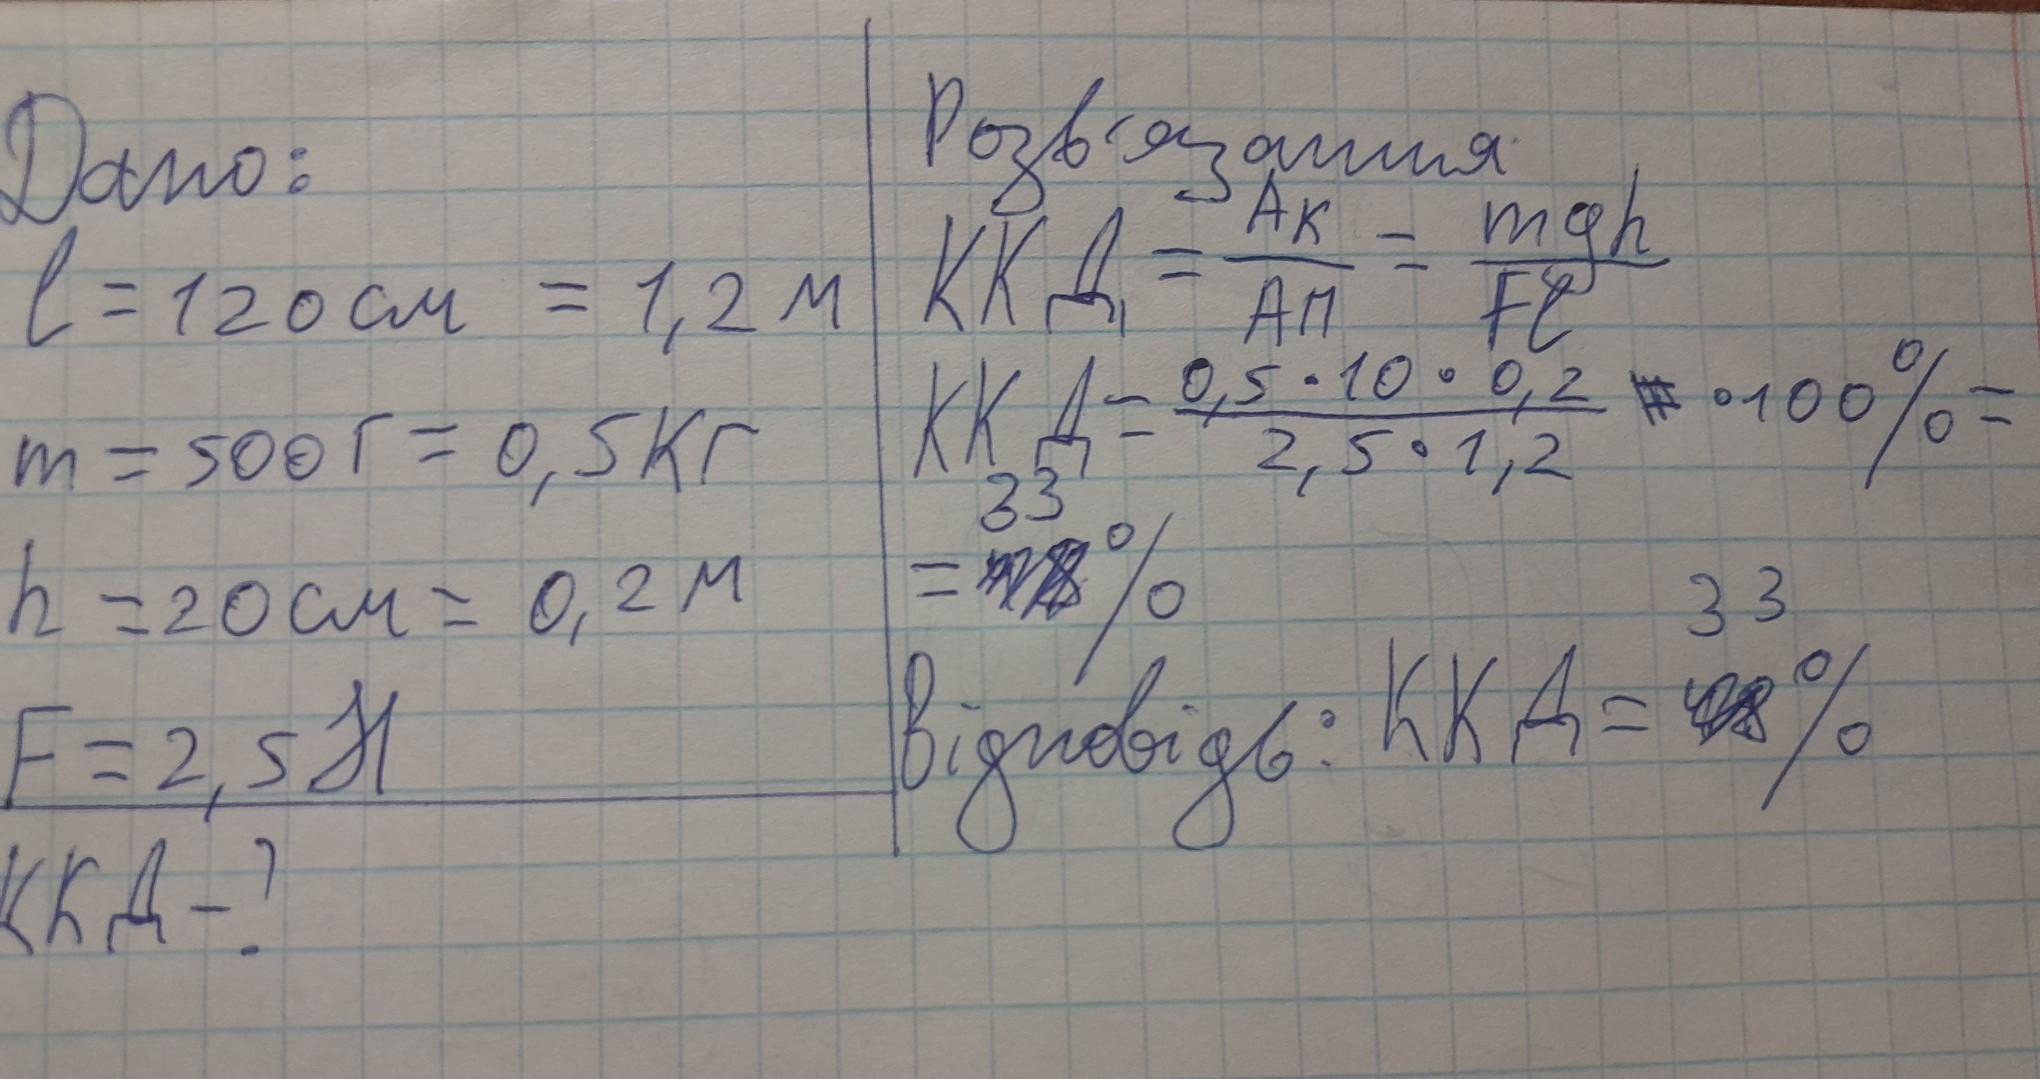 Дано:
l = 120 см = 1,2 м
m = 500 г = 0,5 кг
h = 20 см = 0,2 м
F = 2,5 Н
ККД - ?
Розв'язання
ККД = Ак / Ап = mgh / Fl
ККД = 0,5 · 10 · 0,2 / 2,5 · 1,2 · 100% =
= 33 %
Відповідь: ККД = 33 %